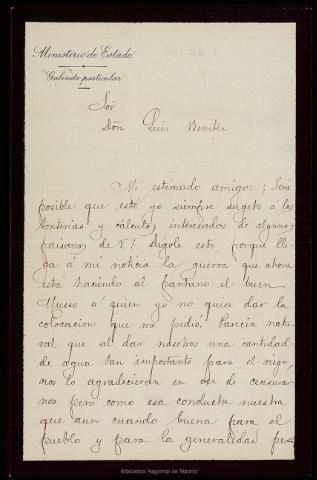 Ministerio de Estado
Gabinete particular
Sor
Don Luis Benítez
Mi estimado amigo: ¿Será
posible que esté yo siempre sugeto á las
tonterías y cálculos interesados de algunos
paisanos de V.? Dígole esto porque lle-
ga á mi noticia la guerra que ahora
está haciendo al pantano el buen
Museo á quien yo no quise dar la
colocacion que me pidió. Parecia natu-
ral que al dar nosotros una cantidad
de agua tan importante para el riego,
nos lo agradecieran en vez de censurar-
nos pero como esa conducta nuestra
que aun cuando buena para el
pueblo y para la generalidad per
Biblioteca Regional de Madrid